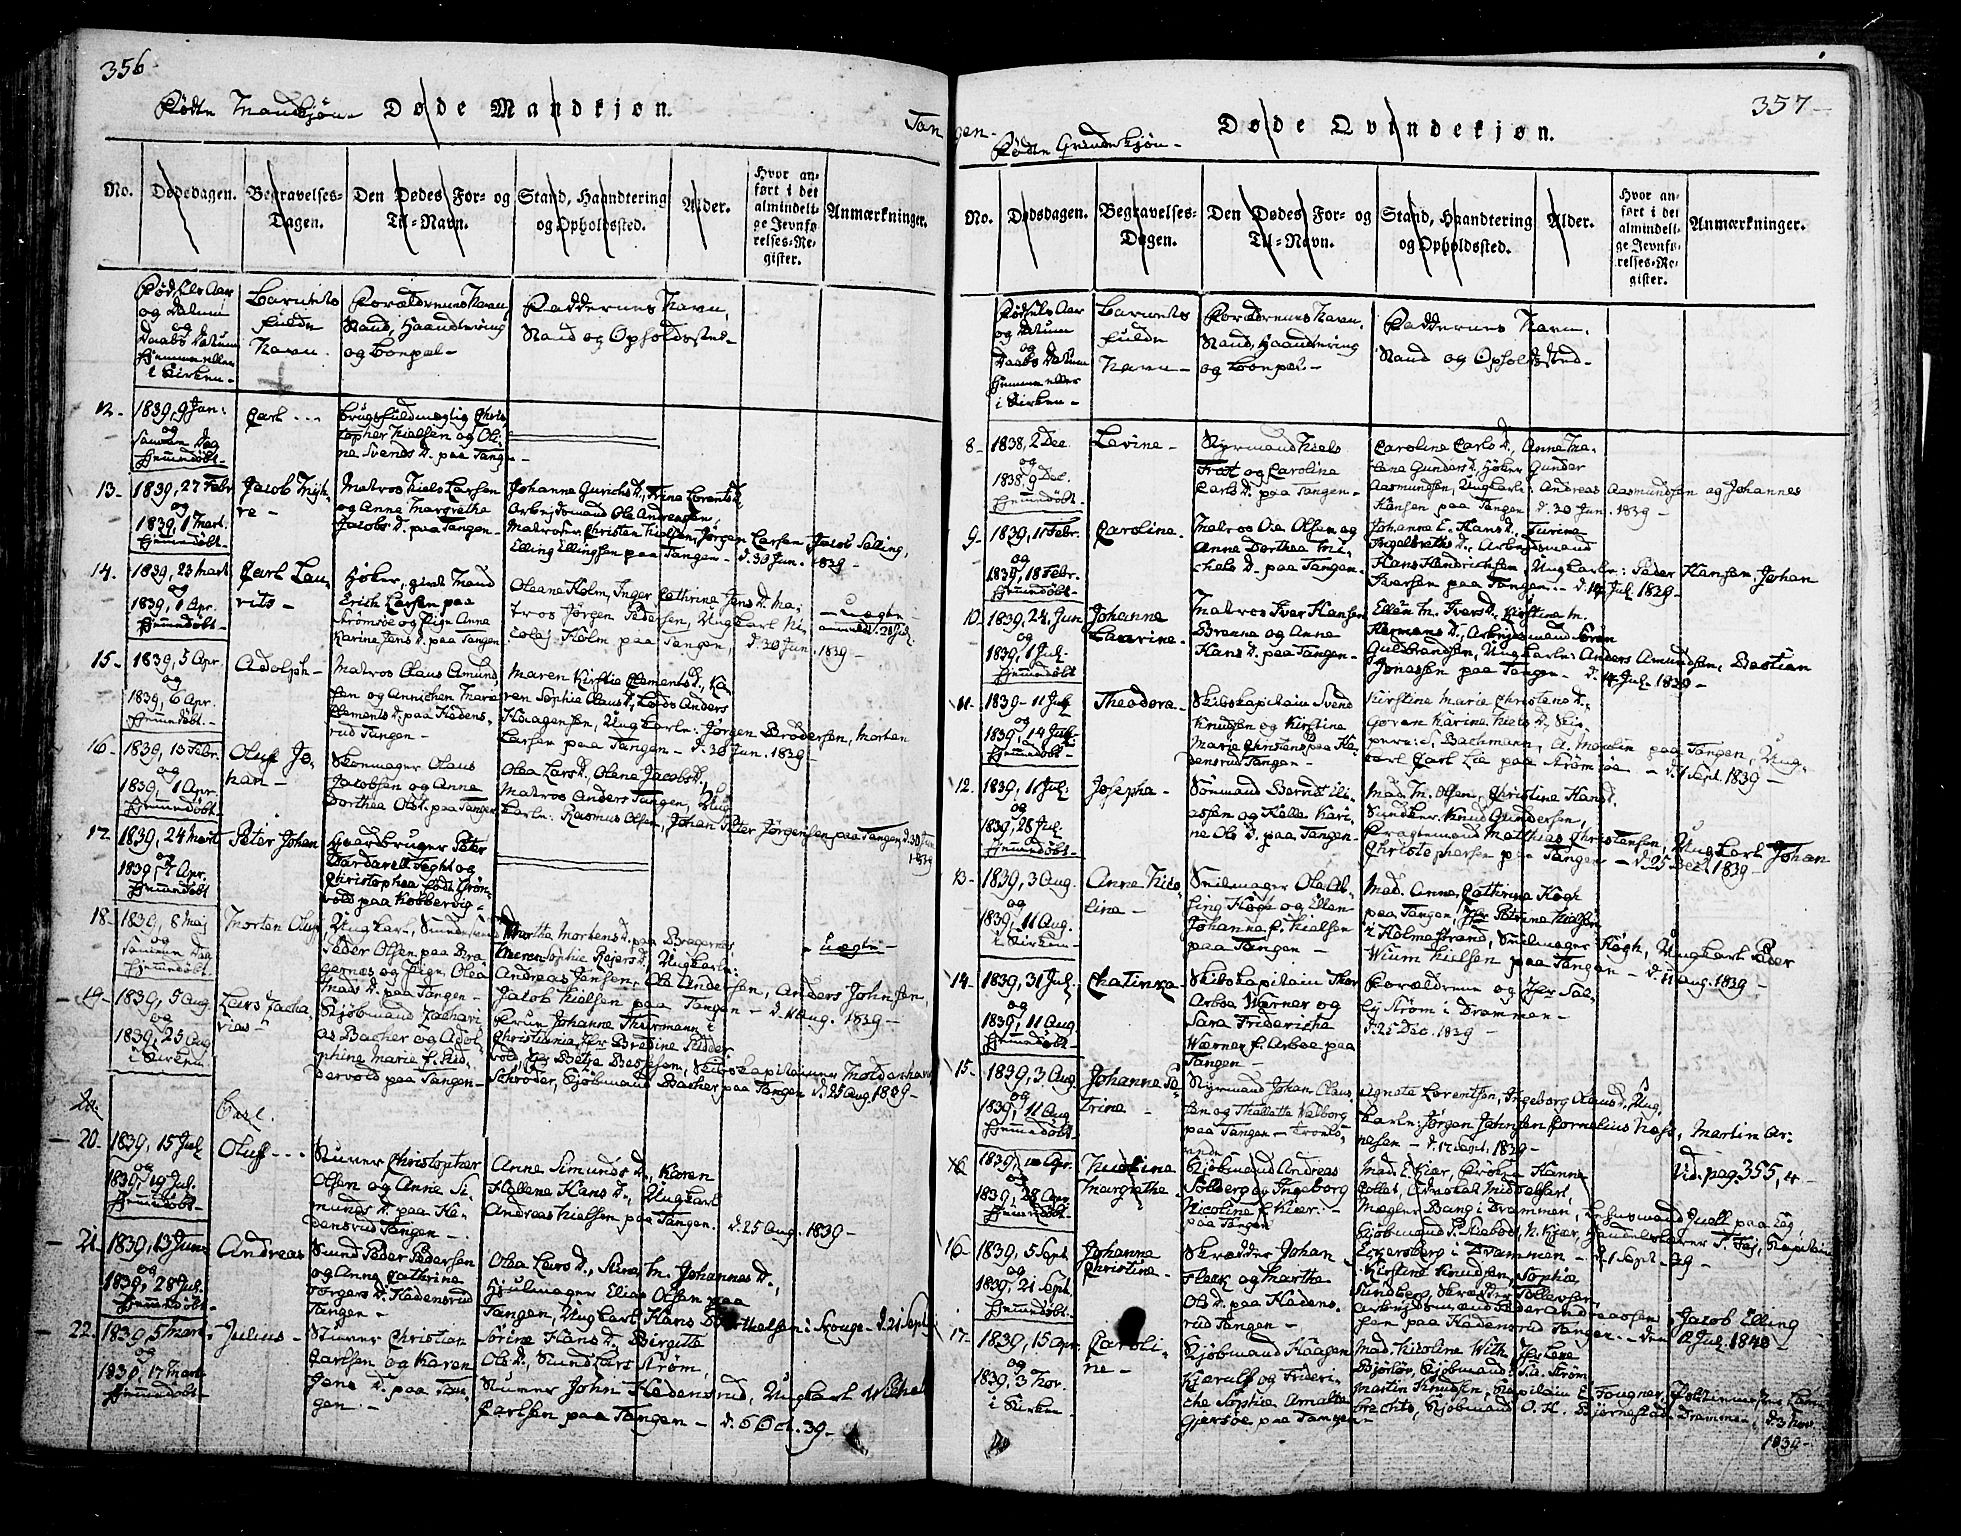 356
Fødte Mandkjøn
Døde Mandkjøn.
Tan
No.
Dødsdagen.
Begravelses-
Dagen.
Den Dødes For- og
Til-Navn.
Stand, Haandtering
og Opholdssted.
Alder.
Hvor an-
ført i det
almindeli-
ge Jevnfø-
relses-Re-
gister.
Anmærkninger.
Fødsels Aar
og Datum
og
Daabs Datum
hjemme eller
i Kirken -
Barnets
fulde
Navn.
Forældrenes Navn,
Stand, Haandtering
og Bopæl -
Faddernes Navn,
Stand og Opholdssted -
12 -
1839, 9 Jan:
og
samme Dag
Hjemmedøbt
Carl - - -
Brugsfuldmægtig Chris
topher Nielsen og Oli-
ne Svends D. paa Tangen -
13 -
1839, 27 Febr
og
1839, 1 Mart.
Hjemmedøbt
Jacob
re -
Matros Niels Larsen
og Anne Margrethe
Jacobs D. paa Tangen -
Johanne D., Trine Lorents D.
Arbejdsmand Ole Andersen,
Matroser Christen Nielsen, Jørgen Larsen, Jacob Selling,
Elling Ellingsen paa Tangen - d. 30 Jun. 1839 -
14 -
1839, 23 Mart
og
1839, 1 Apr.
Hjemmedøbt
Carl Lau-
rits -
Høker, givt Mand
Erich Larsen paa
Strømsøe og Pige Anne
Karine Jens D. paa Tangen
Oleane Holm, Inger Cathrine Jens D. Ma-
tros Jørgen Pedersen, Ungkarl Ni-
colaj Holm paa Tangen, d. 30 Jun. 1839 -
- Uægte -
15 -
1839, 5 Apr.
og
1839, 6 Apr.
Hjemmedøbt -
Adolph -
Matros Olaus Amund
sen og Annichen Marie
Clements D. paa Hedens-
rud Tangen -
Maren Kirstie Clements D., Ka-
ren Sophie Olaus D., Lods Anders
Haagensen, Ungkarle: Jørgen Brodersen, Morten
Larsen paa Tangen - d. 30 Jun. 1839 -
16 -
1839, 13 Febr.
og
1839, 1 Apr.
Hjemmedøbt
Oluf Jo-
han -
Skomager Olaus
Jacobsen og Anne
Dorthea Ols D. paa Tangen
Olea Lars D., Olene Jacobs D.,
Matros Anders Tangen, Ung
karle: Rasmus Olsen, Johan Peter Jørgensen paa Tangen d. 30 Jun
1839
17 -
1839, 24 Mart
og
1839, 7 Apr.
Hjemmedøbt
Peter Johan
Gaardbruger Peter
og
Christophea født Grøn-
vold paa Kobbervig -
18 -
1839, 8 Maj
og
samme Dag
Hjemmedøbt
Morten Oluf
Ungkarl,
Peder Olsen paa Bra-
gernæs og Pige Olea
Mads D. paa Tangen -
Martha Mortens D. paa Bragernæs
Maren Sophie D. Ungkarle:
Andreas Jansen, Ole Andersen, Anders Johnsen,
Jacob Nielsen paa Tangen - d. 11 Aug. 1839 -
- Uægte -
19 -
1839, 5 Aug
og
1839, 25 Aug
i Kirken
Lars Zacha
rias -
Kjøbmand Zachari-
as Bacher og Adol-
phine Marie f. Hed-
dervold paa Tangen -
Frue Johanne Thurmann i
Christiania, Jfr. Bredine Hedder-
vold, Skibskapitainer Moldenhaw
Schrøder, Kjøbmand Bacher paa Tangen d. 25 Aug. 1839 -
20.
Carl.
- 20.
1839, 15 Jul
og
1839, 19 Jul.
Hjemmedøbt -
Oluf - - -
Sturer Christopher
Olsen og Anne Si-
munds D. paa He-
densrud Tangen -
Anne Simunds D., Karen
Hellene Hans D., Ungkarl
Andreas Nielsen paa Tangen. d. 25 Aug. 1839 -
- 21.
1839, 13 Juni
og
1839, 28 Jul.
Hjemmedøbt -
Andreas
Peder Pedersen
og Anne Cathrine
Torgers D. Hedensrud
Tangen -
Olea Lars D., Stine M. Johannes D.,
Hjulmager Elias Olsen paa
Tangen, Ungkarl Hans Barthelsen i Skouge - d. 21 Sept
- 22.
1839, 5 Mart.
og
1839, 17 Mart
Hjemmedøbt
Julius -
Sturer Christian
Carlsen og Karen
Jens D. paa Tan-
gen. -
Sørine Hans D. Birgitte
Ols D., Strøm,
Sturer John Hedensrud, Ungkarl Wilhelm
Carlsen paa Tangen - d. 6 Oct. 39 -
357 -
gen -
Fødte Qvindekjøn -
Døde Qvindekjøn.
No.
Dødsdagen.
Begravelses-
Dagen.
Den Dødes For- og
Til-Navn.
Stand, Haandtering
og Opholdssted.
Alder.
Hvor an-
ført i det
almindeli-
ge Jevnfø-
relses-Re-
gister.
Anmærkninger.
Fødsels Aar
og Datum
og
Daabs Datum
hjemme eller
i Kirken -
Barnets
fulde
Navn -
Forældrenes Navn,
Stand, Haandtering
og Bopæl -
Faddernes Navn,
Stand og Opholdssted -
8 -
1838, 2 Dec.
og
1838, 9 Dec.
Hjemmedøbt -
Levine -
Styrmand Niels
Trost og Caroline
Carls D. paa Tangen -
Caroline Carls D., Anne Ma-
lene Gunders D., Høker Gunder
Aasmundsen, Ungkarle: Andreas Aasmundsen og Johannes
Hansen paa Tangen d. 30 Jun. 1839 -
9 -
1839, 11 Febr.
og
1839, 18 Febr.
Hjemmedøbt -
Caroline -
Matros Ole Olsen og
Anne Dorthea Mi-
chels D. paa Tangen -
Johanne E. Hans D., Turine
Ingebreths D., Arbejdsmand
Hans Hendrichsen, Ungkarle: Peder Hansen, Johan
Iversen paa Tangen - d. 14 Jul. 1839 -
10 -
1839, 24 Jun
og
1839, 1 Jul.
Hjemmedøbt
Johanne
Laurine -
Matros Iver Hansen
Brenne og Anne
Hans D. paa Tangen -
Ellen M. Ivers D., Kirstine M.
Hermans D., Arbejdsmand Søren
Guldbrandsen, Ungkarle: Anders Amundsen, Bastian
Jonassen paa Tangen - d. 14 Jul. 1839 -
11 -
1839 - 11 Jul
og
1839, 14 Jul
Hjemmedøbt
Theodora -
Skibskapitain Svend
Knudsen og Kirstine
Marie Christens paa He-
densrud Tangen -
Kirstine Marie Christens D.
Goren Karine Niels D., Skip-
pere: S. Bachmann, A. Moulin paa Tangen, Ung-
karl Carl Lie paa Strømsøe - d. 1 Sept. 1839 -
12 -
1839, 11 Jul.
og
1839, 28 Jul.
Hjemmedøbt -
Josepha -
Sømand Bernt Eli-
assen og Helle Kari-
ne Ols D. paa Tangen -
Mad. M. Olsen, Christine Hans D.
Knud Gundersen,
Fragtemand Matthias Christensen, Ungkarl Johan
Christophersen paa Tangen - d. 25 Dec. 1839 -
13 -
1839, 3 Aug.
og
1839, 11 Aug.
i Kirken -
Anne Nico-
line -
Seilmager Ole Ab-
sing Høgh og Ellen
Johanne f. Nielsen
paa Tangen -
Mad. Anne Cathrine Høgh
paa Tangen, Jfr. Petrine Nielsen
i Holmestrand, Seilmager Høgh, Ungkarl Peder
Wium Nielsen paa Tangen - d. 11 Aug. 1839 -
14 -
1839, 31 Jul.
og
1839, 11 Aug
Hjemmedøbt -
Chatinka -
Skibskapitain Thor
Arboe Wærner og
Sara Frideriche
Wærner f. Arboe paa
Tangen -
Forældrene og Jfr. Sal-
ly Strøm i Drammen -
d. 25 Dec. 1839 -
15 -
1839, 3 Aug
og
1839, 11 Aug
Hjemmedøbt -
Johanne Pe-
trine -
Styrmand Johan Claus
sen og Thallette Walborg
paa Tangen -
Agnete Lorentsen, Ingeborg Olaus D., Ung-
karle: Jørgen Johnsen, Cornelius Næss, Martin Ar-
nesen - d. 17 Sept. 1839 -
16
1839, 10 Apr.
og
1839, 28 Apr
Hjemmedøbt -
Nicoline
Margrethe
Kjøbmand Andreas
Solberg og Ingeborg
Nicoline f. Kiær. -
paa Tangen
Mad. E. Kiær, Frøken Hanne
Collet, Advokat Middelfart,
Mægler Bang i Drammen, Lehnsmand Juell paa Lág
Kjøbmand P. Skibod, N. Kjær, Handelsborger T. Faj, Kapitain
Eckersberg i Drammen - d. 1 Sept. 39 -
Vid. pag. 355, 4 -
16 -
1839, 5 Sept
og
1839, 21 Sept.
Hjemmedøbt -
Johanne
Christine -
Skrædder Johan
Fleck og Marthe
Ols D. paa Hedens-
rud Tangen -
Kirstine Knudsen, Sophie
Sundberg, Skrædder Tollevsen,
Arbejdsmand Peder Andreassen, Jacob Elling
sen paa Hedensrud Tangen - den 12 Jul. 1840 -
17 -
1839, 15 Apr
og
1839, 3 Nov.
i Kirken -
Caroli-
ne -
Kjøbmand Haagen
Kierulf og Frideri-
che Sophie Amalie
Gjersøe paa Tangen -
Mad. Nicoline With, Jfr. Lene
Bjørlov, Kjøbmand: Sii. Strøm
Martin Knudsen, Kapitain E. Fougner,
brechts, Kjøbmand O. H. Bjørnestad Drammen, d. 3 Nov
1839 -